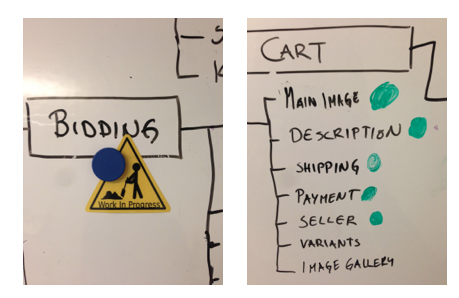 BIDDING
Work In Progress
CART
MAIN IMAGE
DESCRIPTION
SHIPPING
PAYMENT
SELLER
VARIANTS
IMAGE GALLERY